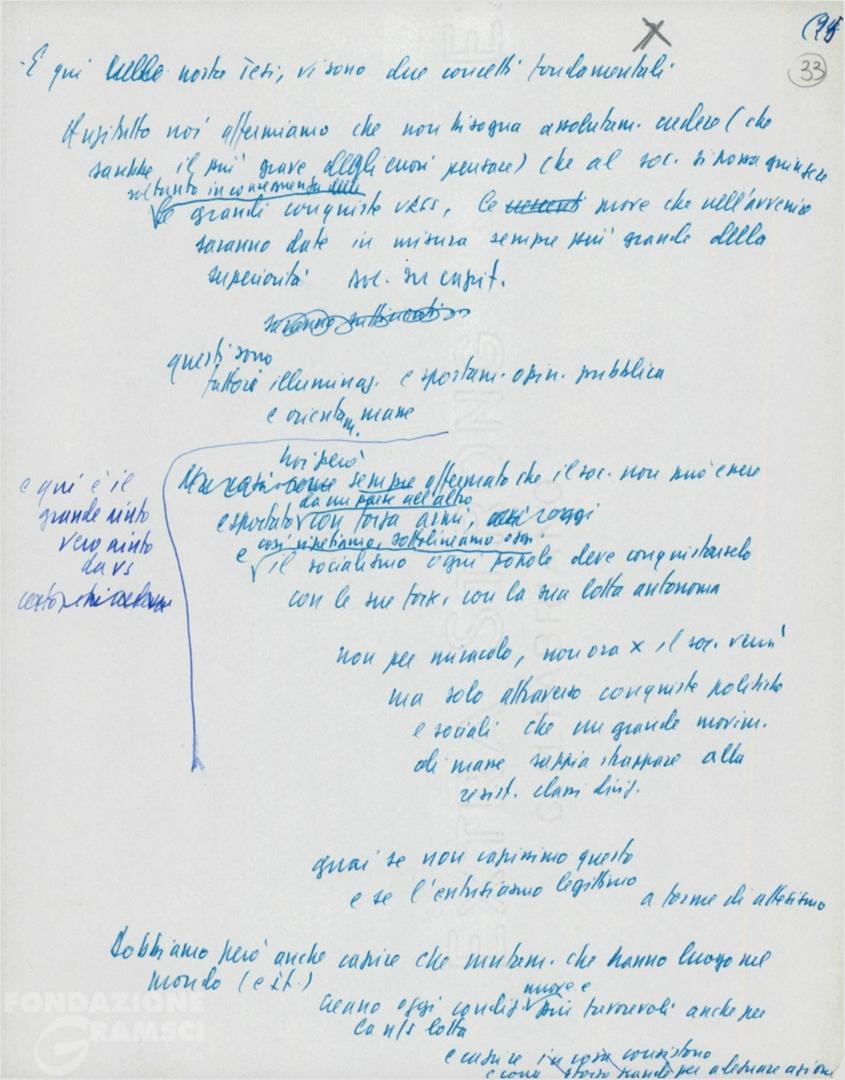 (95
33
- E qui nelle nostre Tesi, vi sono due concetti fondamentali
Anzitutto noi affermiamo che non bisogna assolutam. credere (che
sarebbe il più grave degli errori pensare) che al soc. si possa giungere
soltanto in conseguenza delle
le grandi conquiste URSS, le nuove che nell'avvenire
saranno date in misura sempre più grande della
superiorità soc. su capit.
questi sono
fattori illuminaz. e spostam. opin. pubblica
e orientam. masse
noi però
sempre affermato che il soc. non può essere
da un paese all'altro
esportato con forza armi, oggi
e così ripetiamo, sottoliniamo oggi
il socialismo ogni popolo deve conquistarselo
con le sue forze, con la sua lotta autonoma
e qui è il
grande punto
vero punto
da vs
non per miracolo, non ora x il soc. verrà
ma solo attraverso conquiste politiche
e sociali che un grande movim.
di masse sappia strappare alla
resist. classi dirig.
guai se non capissimo questo
e se l'entusiasmo legittimo a forme di attesismo
Dobbiamo però anche capire che mutam. che hanno luogo nel
mondo (e it.)
nuove e
creano oggi condiz. più favorevoli anche per
la n/s lotta
e capire in cosa consistono
e come per adeguare azione
FONDAZIONE
GRAMSCI